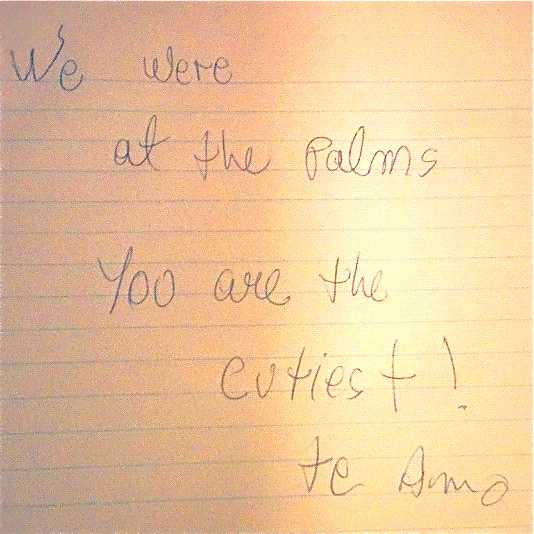 We were
at the Palms
Yoo are the
cutiest!
te Amo